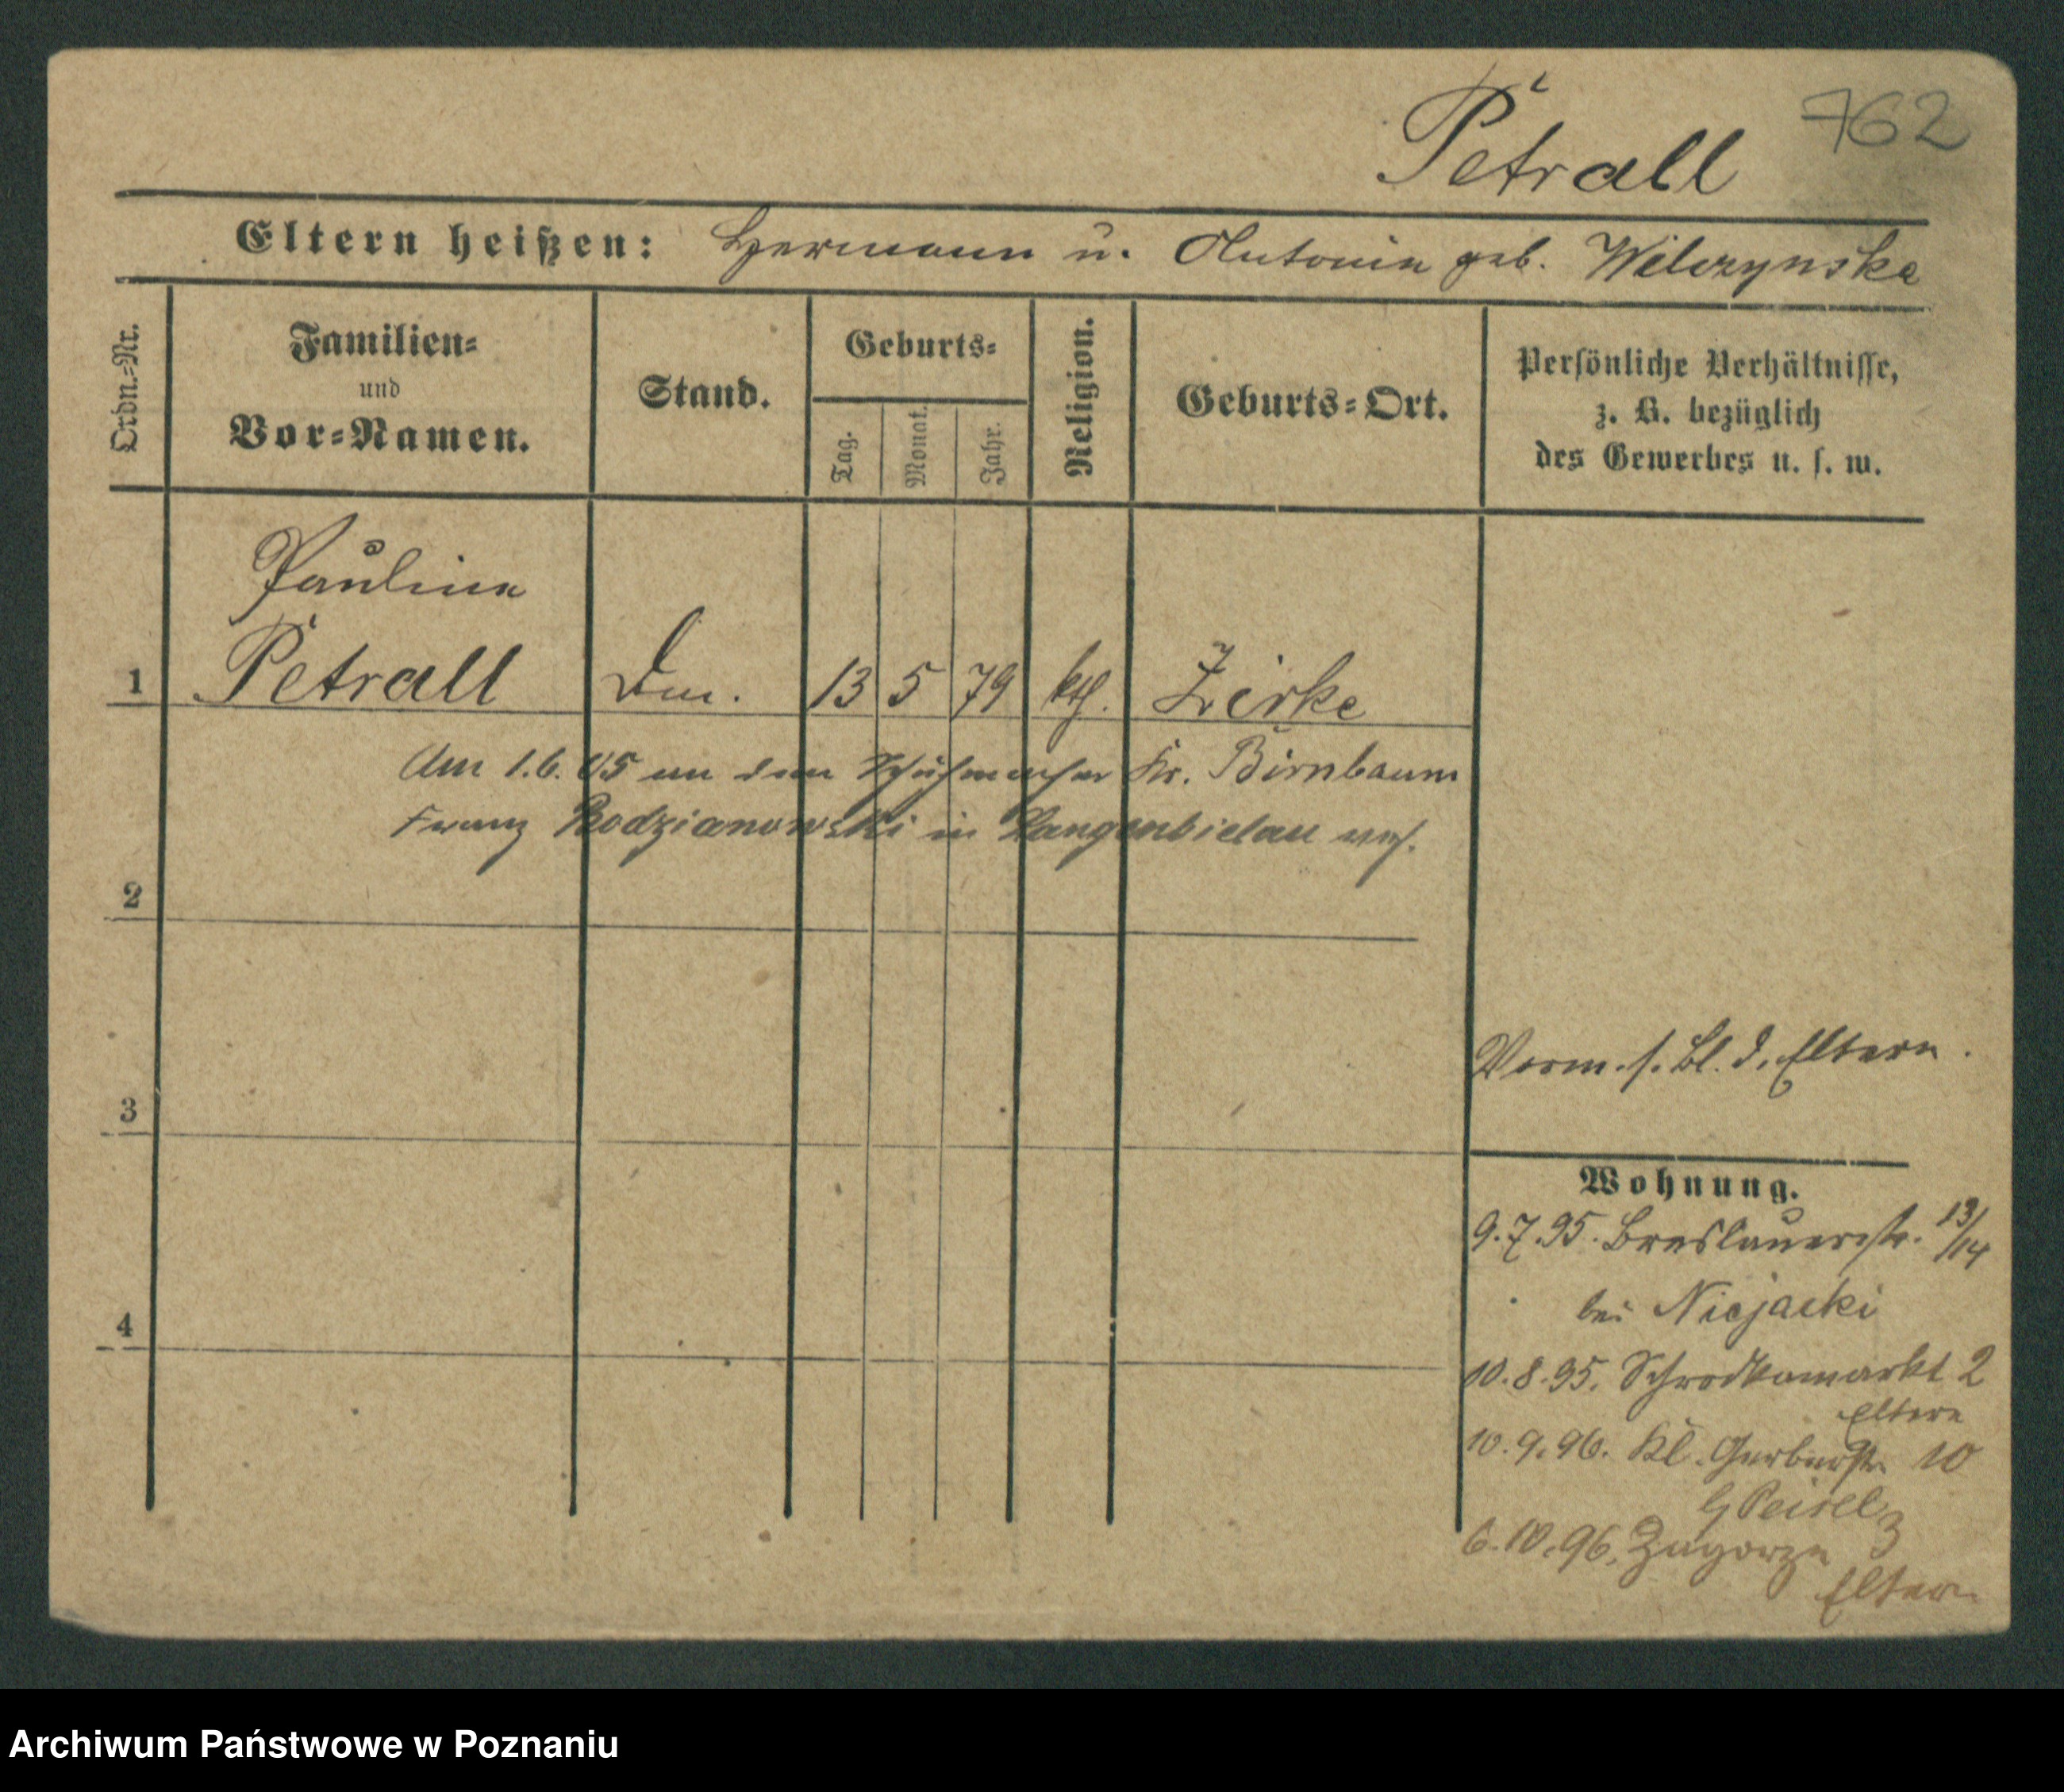 762
Petrall
Eltern heißen: Hermann u. Antonie geb. Wilczynska
Ordn.-Nr.
Familien-
und
Vor-Namen.
Stand.
Geburts-
Tag.
Monat.
Jahr.
Religion.
Geburts-Ort.
Persönliche Verhältnisse,
z. B. bezüglich
des Gewerbes u. s. w.
Pauline
1 Petrall 13 5 79 kth. Zirke
Am 1.6.05 an den Schuhmacher Kr. Birnbaum
Franz Rodzianowski in Langenbielau verh.
2
3
4
Vorm. s. Bl. d. Eltern.
Wohnung.
9.7.95. Breslauerstr. 13/14
bei Niejacki
10.8.95. Schrodkamarkt 2
Eltern
10.9.96. Kl. Gerberstr. 10
Peisel
6.10.96. Zagorze 3
Eltern
Archiwum Państwowe w Poznaniu